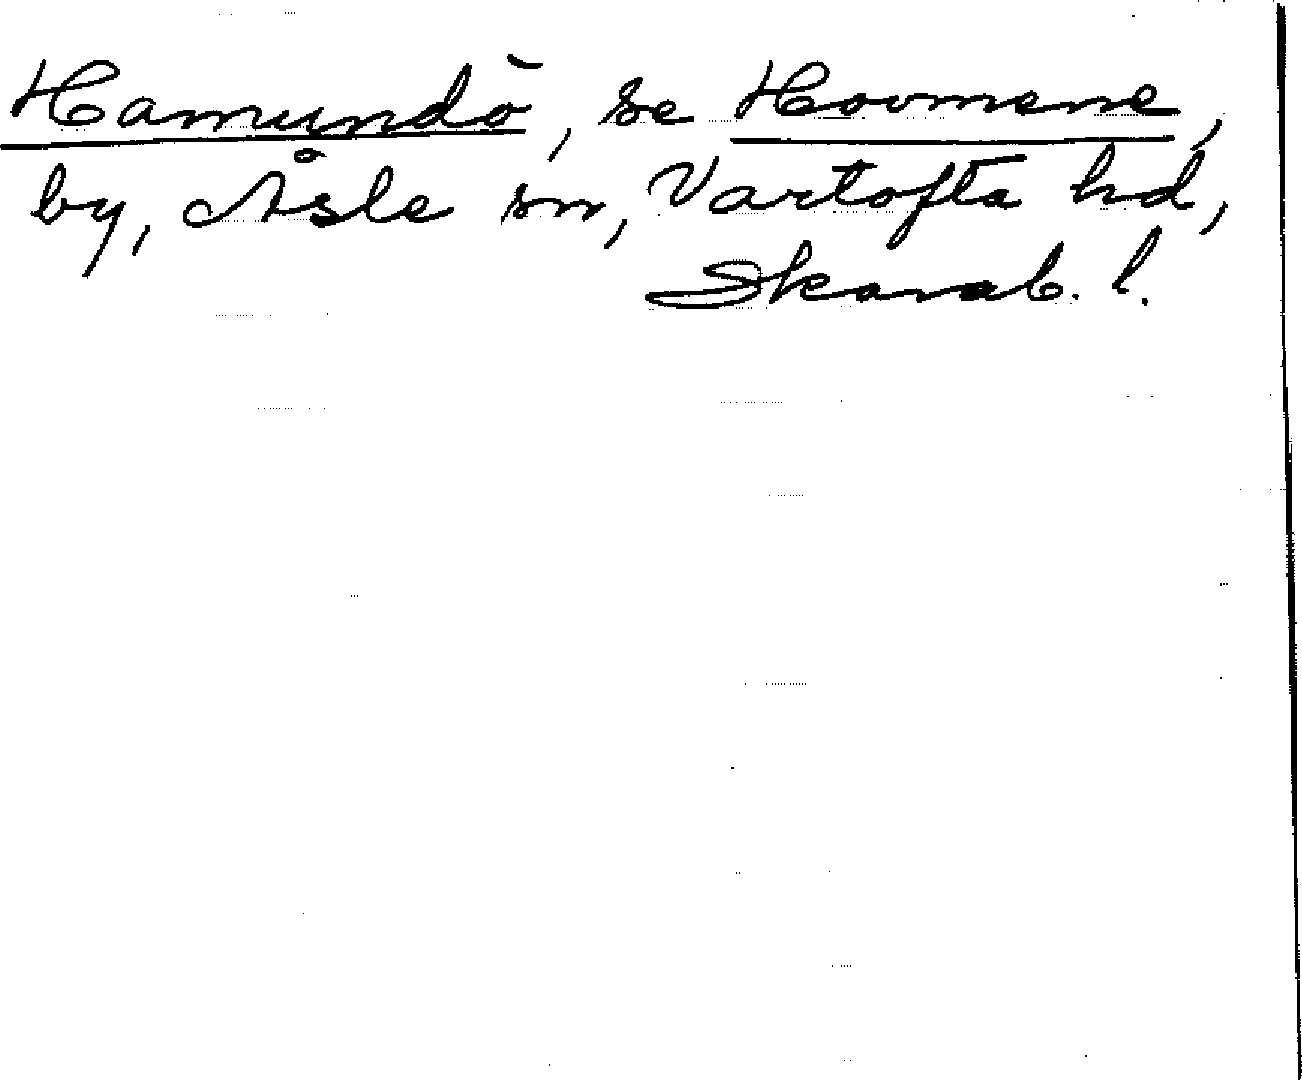 Hamundö, se Hovmene,
by, Åsle sn, Vartofta hd,
Skarab. l.